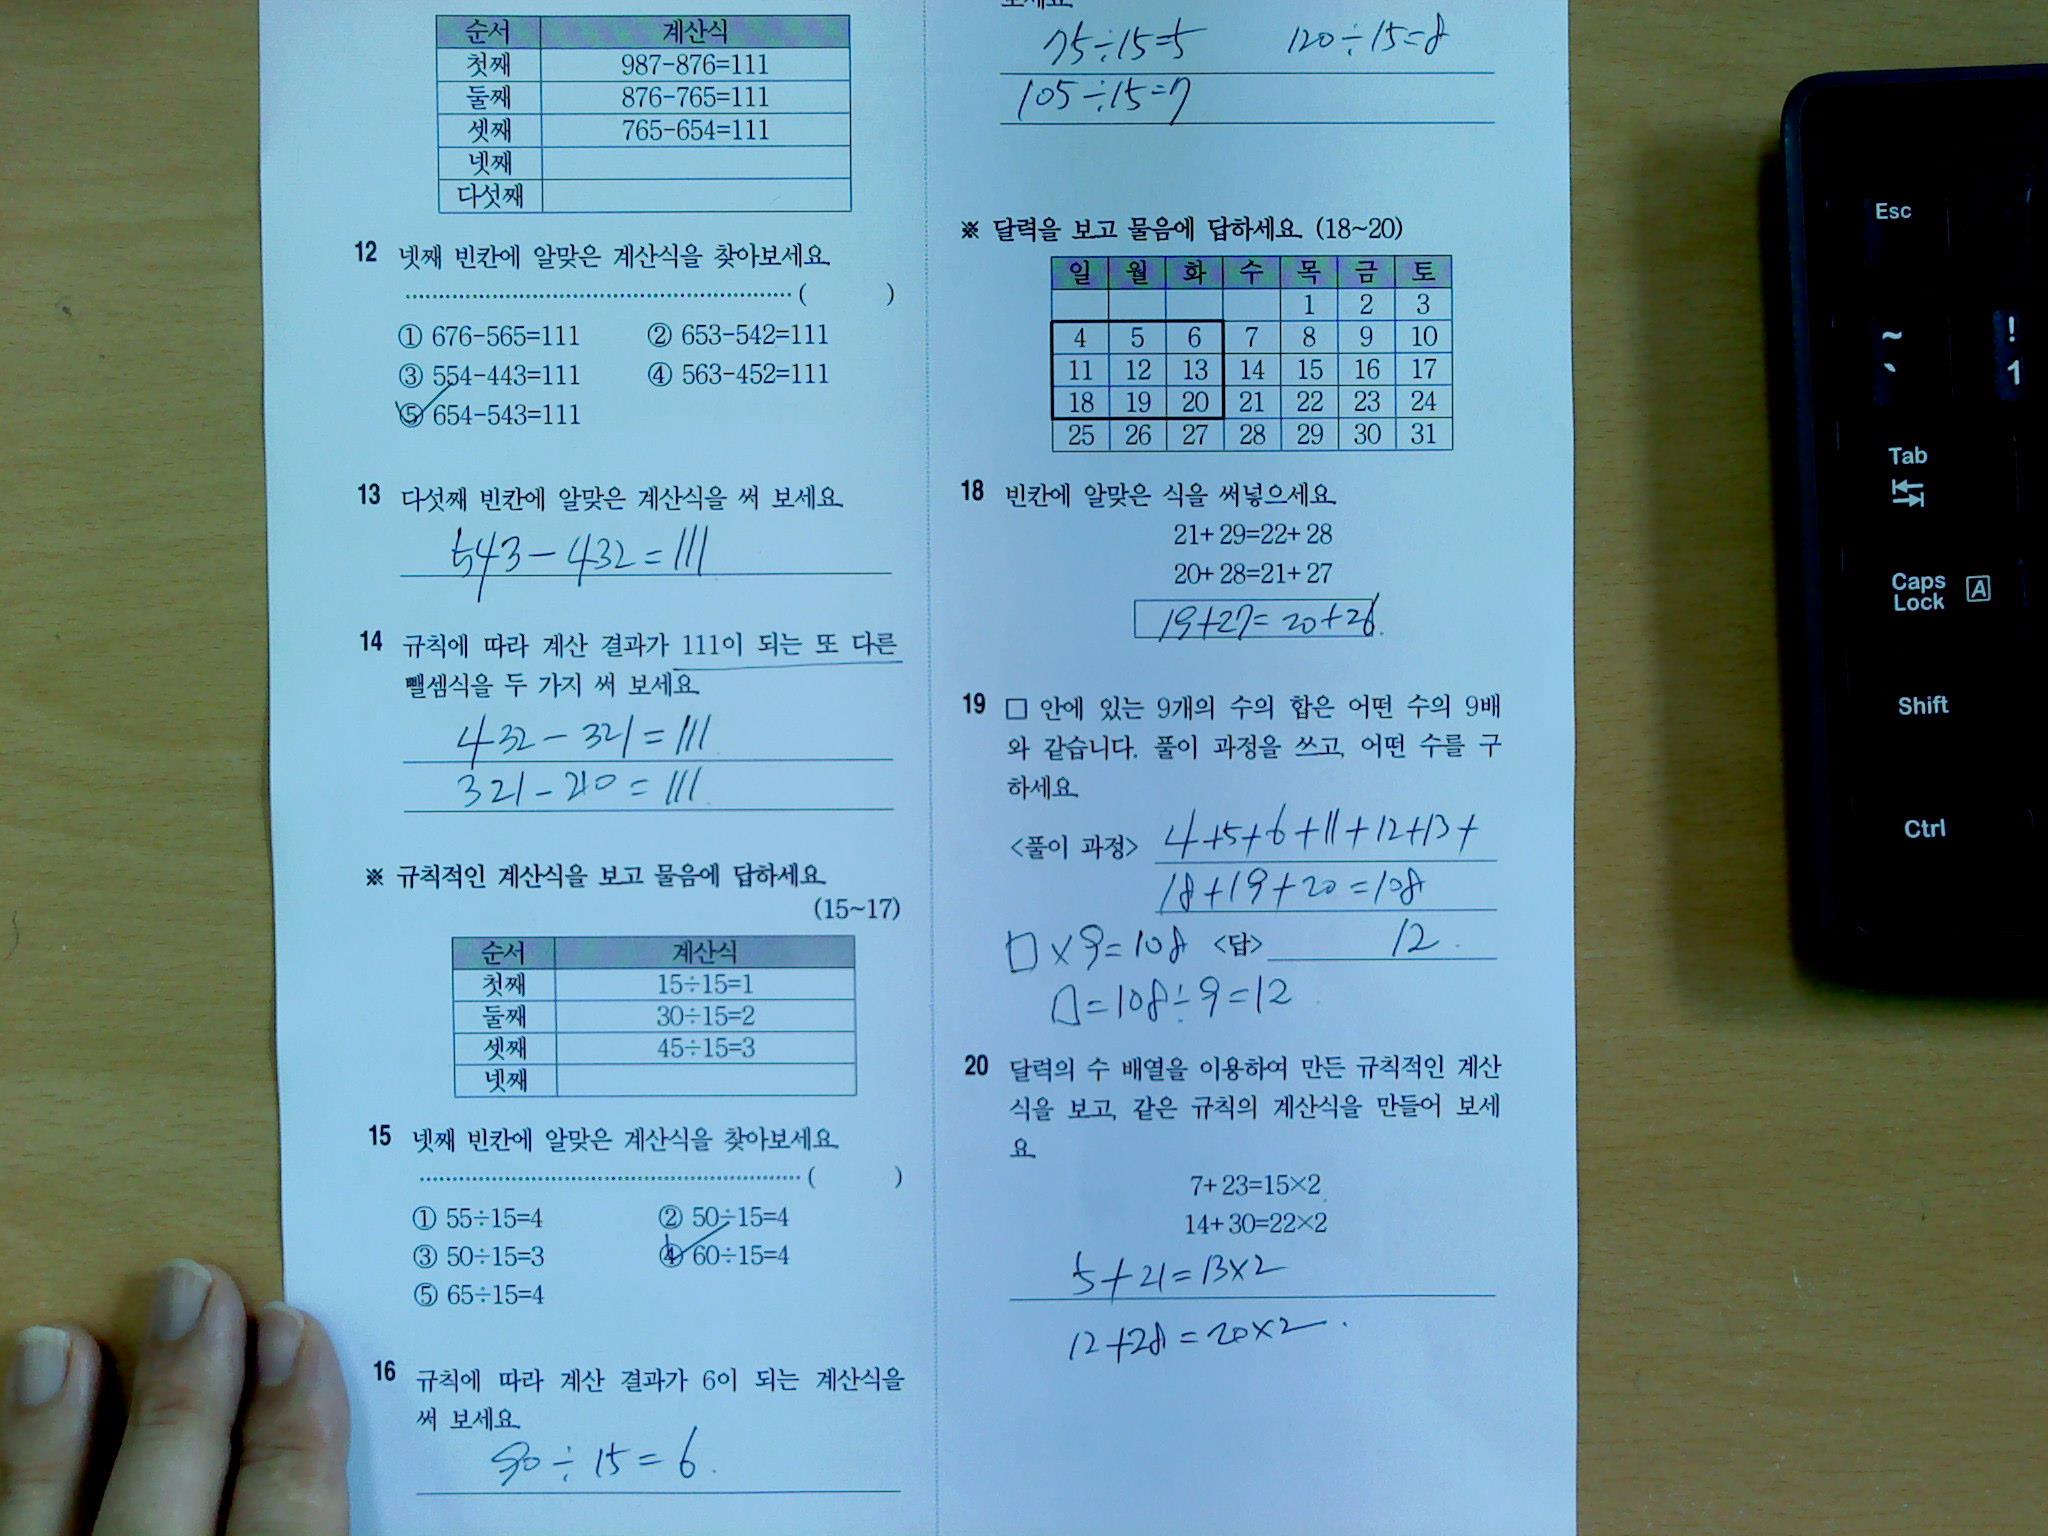 순서 계산식
첫째 987-876=111
둘째 876-765=111
셋째 765-654=111
넷째
다섯째
12 넷째 빈칸에 알맞은 계산식을 찾아보세요.
( )
① 676-565=111 ② 653-542=111
③ 554-443=111 ④ 563-452=111
⑤ 654-543=111
13 다섯째 빈칸에 알맞은 계산식을 써 보세요.
543-432=111
14 규칙에 따라 계산 결과가 111이 되는 또 다른
뺄셈식을 두 가지 써 보세요.
432-321=111
321-210=111
※ 규칙적인 계산식을 보고 물음에 답하세요.
(15~17)
순서 계산식
첫째 15÷15=1
둘째 30÷15=2
셋째 45÷15=3
넷째
15 넷째 빈칸에 알맞은 계산식을 찾아보세요.
( )
① 55÷15=4 ② 50÷15=4
③ 50÷15=3 ④ 60÷15=4
⑤ 65÷15=4
16 규칙에 따라 계산 결과가 6이 되는 계산식을
써 보세요.
90÷15=6.
75÷15=5 120÷15=8
105÷15=7
※ 달력을 보고 물음에 답하세요. (18~20)
일 월 화 수 목 금 토
1 2 3
4 5 6 7 8 9 10
11 12 13 14 15 16 17
18 19 20 21 22 23 24
25 26 27 28 29 30 31
18 빈칸에 알맞은 식을 써넣으세요.
21+29=22+28
20+28=21+27
19+27=20+26.
19 □ 안에 있는 9개의 수의 합은 어떤 수의 9배
와 같습니다. 풀이 과정을 쓰고, 어떤 수를 구
하세요.
<풀이 과정> 4+5+6+11+12+13+
18+19+20=108
□×9=108 <답> 12.
□=108÷9=12.
20 달력의 수 배열을 이용하여 만든 규칙적인 계산
식을 보고, 같은 규칙의 계산식을 만들어 보세
요.
7+23=15×2
14+30=22×2
5+21=13×2
12+28=20×2.
Esc
~ !
` 1
Tab
Caps
Lock A
Shift
Ctrl